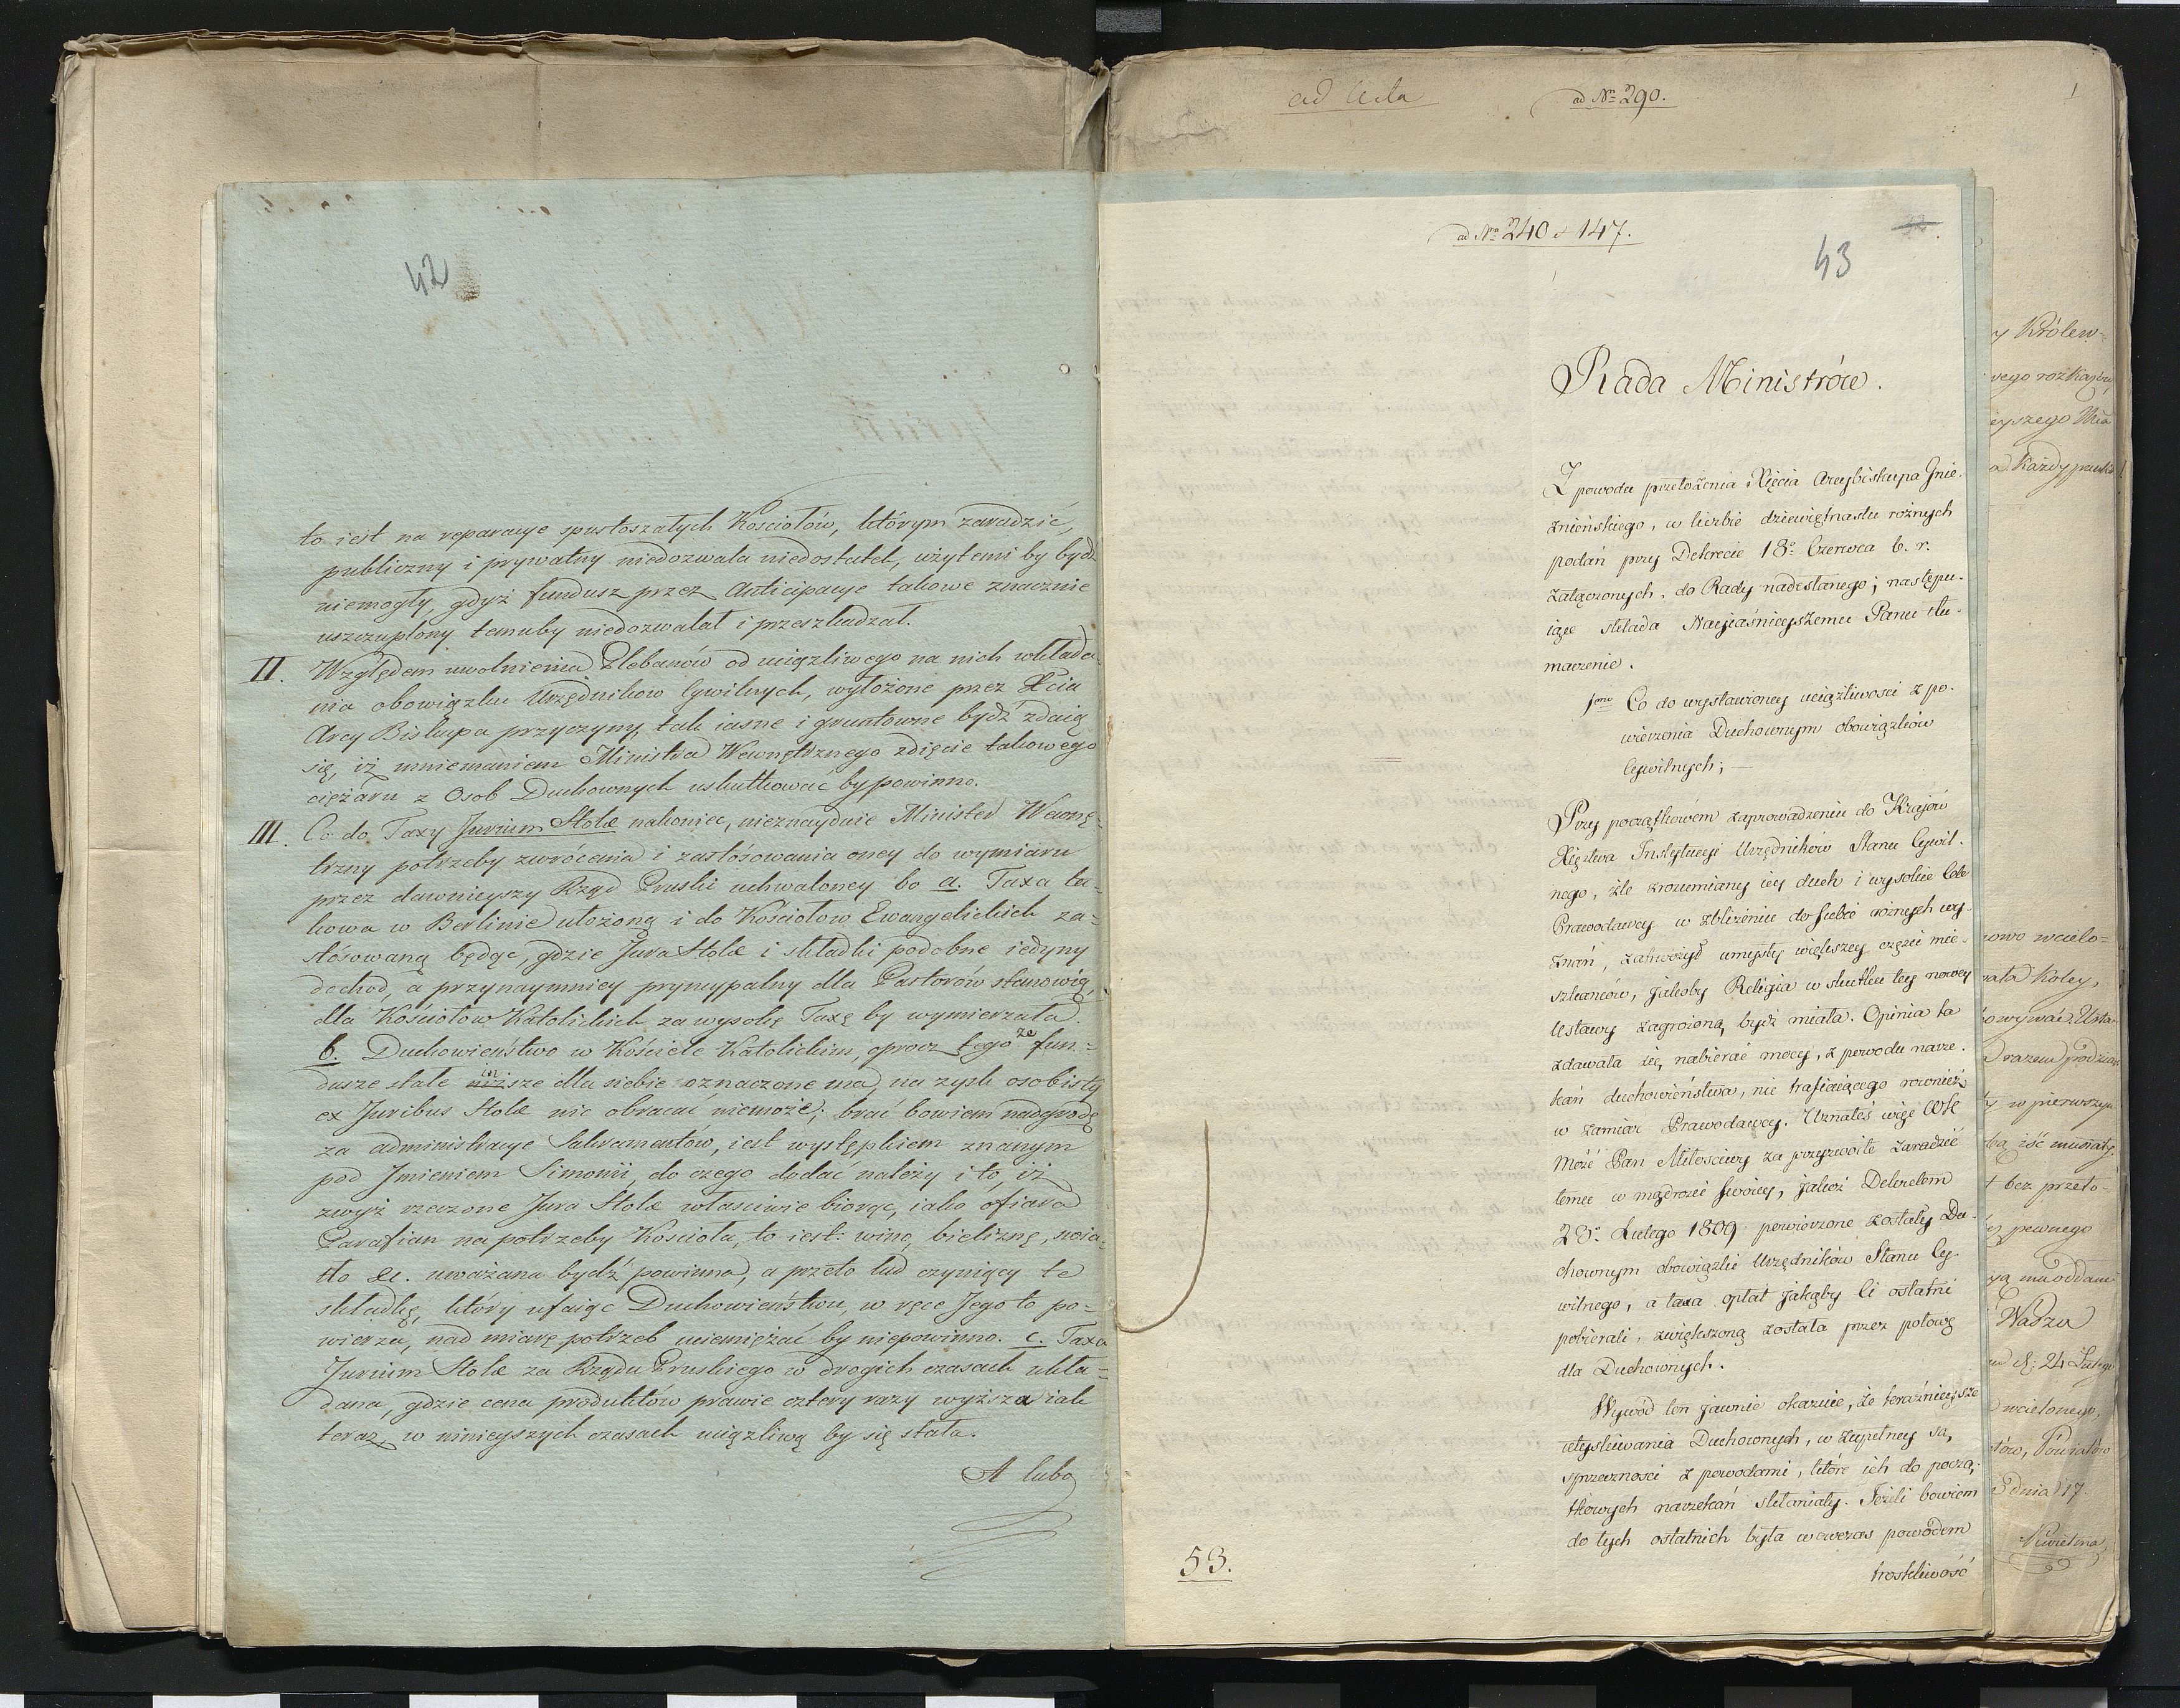 42
to iest na reparacye spustoszałych Kosciołów, którym zaradzić,
publiczny i prywatny niedozwala niedostatek, użytemi by bydź
niemogły, gdyż fundusz przez Anticipacye takowe znacznie
uszczuplony temuby niedozwalał i przeszkadzał.
II. Względem uwolnienia Plebanów od uciążliwego na nich wkłada-
nia obowiązku Urzędnikow Cywilnych, wyłożone przez Xcia
Arcy Biskupa przyczyny, tak iasne i gruntowne bydź zdaią
się, iż mniemaniem Ministra Wewnętrznego zdięcie takowego
ciężaru z Osob Duchownych uskutkować by powinno.
III. Co do Taxy Jurium Stolæ nakoniec, nieznayduie Minister Wewnę-
trzny potrzeby zwrócenia i zastósowania oney do wymiaru
przez dawnieyszy Rząd Pruski uchwaloney bo a. Taxa ta-
kowa w Berlinie ułożoną i do Kościołow Ewangelickich za-
stósowaną będąc, gdzie Jura Stolæ i składki podobne iedyny
dochod, a przynaymniey pryncypalny dla Pastorów stanowią,
dla Kościołow Katolickich za wysoką Taxę by wymierzała.
b. Duchowieństwo w Kościele Katolickim, oprocz tego że fun-
dusze stałe insze dla siebie oznaczone ma, na zysk osobisty
ex Juribus Stolæ nic obracać niemoże; brać bowiem nadgrodę
za administracye Sakramentów, iest występkiem znanym
pod Jmieniem Simonii, do czego dodać należy i to, iż
zwyż rzeczone Jura Stolæ własciwie biorąc, iako ofiara
Parafian na potrzeby Kościoła, to iest: wino, bieliznę, swia-
tło &c. uważana bydź powinna, a przeto lud czyniący te
składkę, który ufaiąc Duchowieństwu, w ręce Jego to po-
wierza, nad miarę potrzeb uciemiężać by niepowinno. c. Taxa
Jurium Stolæ za Rządu Pruskiego w drogich czasach ukła-
dana, gdzie cena produktów prawie cztery razy wyższa iak
teraz, w ninieyszych czasach uciążliwą by się stała.
A lubo
ad Nº 290.
1
ad Nro 240 & 147.
43
Rada Ministrów.
Z powodu przełożenia Xięcia Arcybiskupa Gnie-
znieńskiego, w liczbie dziewiętnastu rożnych
podań przy Dekrecie 18º Czerwca b. r.
załączonych, do Rady nadesłanego; następu-
iące składa Nayiaśnieyszemu Panu tłu-
maczenie.
1mo Co do wystawioney uciążliwosci z po-
wierzenia Duchownym obowiązków
Cywilnych; —
Przy początkowém zaprowadzeniu do Krajów
Xięztwa Instytucyi Urzędników Stanu Cywil-
nego, źle zrozumiany iey duch i wysokie cele
Prawodawcy w zbliżeniu do siebie rożnych wy-
znań, zatrwożył umysły większey części mie-
szkańców, jakoby Religia w skutku tey nowey
Ustawy zagrożoną bydź miała. Opinia ta
zdawała się, nabierać mocy, z powodu narze-
kań duchowieństwa, nie trafiaiącego rownież
w zamiar Prawodawcy. Uznałeś więc WK
Mość Pan Miłościwy za przyzwoite zaradzić
temu w mądrości swoiey, jakoż Dekretem
23º Lutego 1809 powierzone zostały Du-
chownym obowiązki Urzędników Stanu Cy-
wilnego, a taxa opłat jakąby Ci ostatni
pobierali, zwiększoną została przez połowę
dla Duchownych.
Wywód ten jawnie okazuie, że teraźnieysze
utyskiwania Duchownych, w zupełney są,
sprzeczności z powodami, które ich do począ-
tkowych narzekań skłaniały. Jeżeli bowiem
do tych ostatnich była wowczas powodem
troskliwość
53.
y Królew-
wego rozkazu,
eyszego
a. Każdy
nowo wcielo=
nata Koley,
w pierwszym
iść musiały,
bez przeło-
pewnego
24 Lutego
wcielonego,
tów, Powiatów
3 dnia 17.